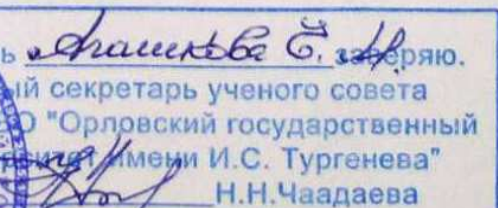 ь Агашкова Е. заверяю.
ый секретарь ученого совета
О "Орловский государственный
имени И.С. Тургенева"
Н.Н.Чаадаева